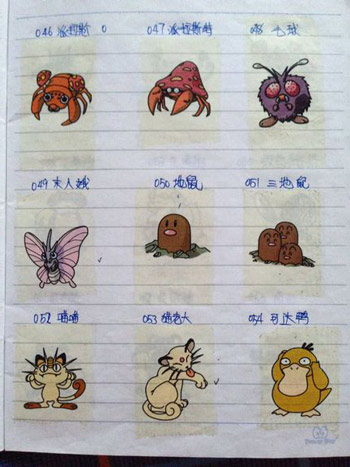 046 派拉斯
047 派拉斯特
048 毛球
049 末入蛾
050 地鼠
051 三地鼠
052 喵喵
053 猫老大
054 可达鸭